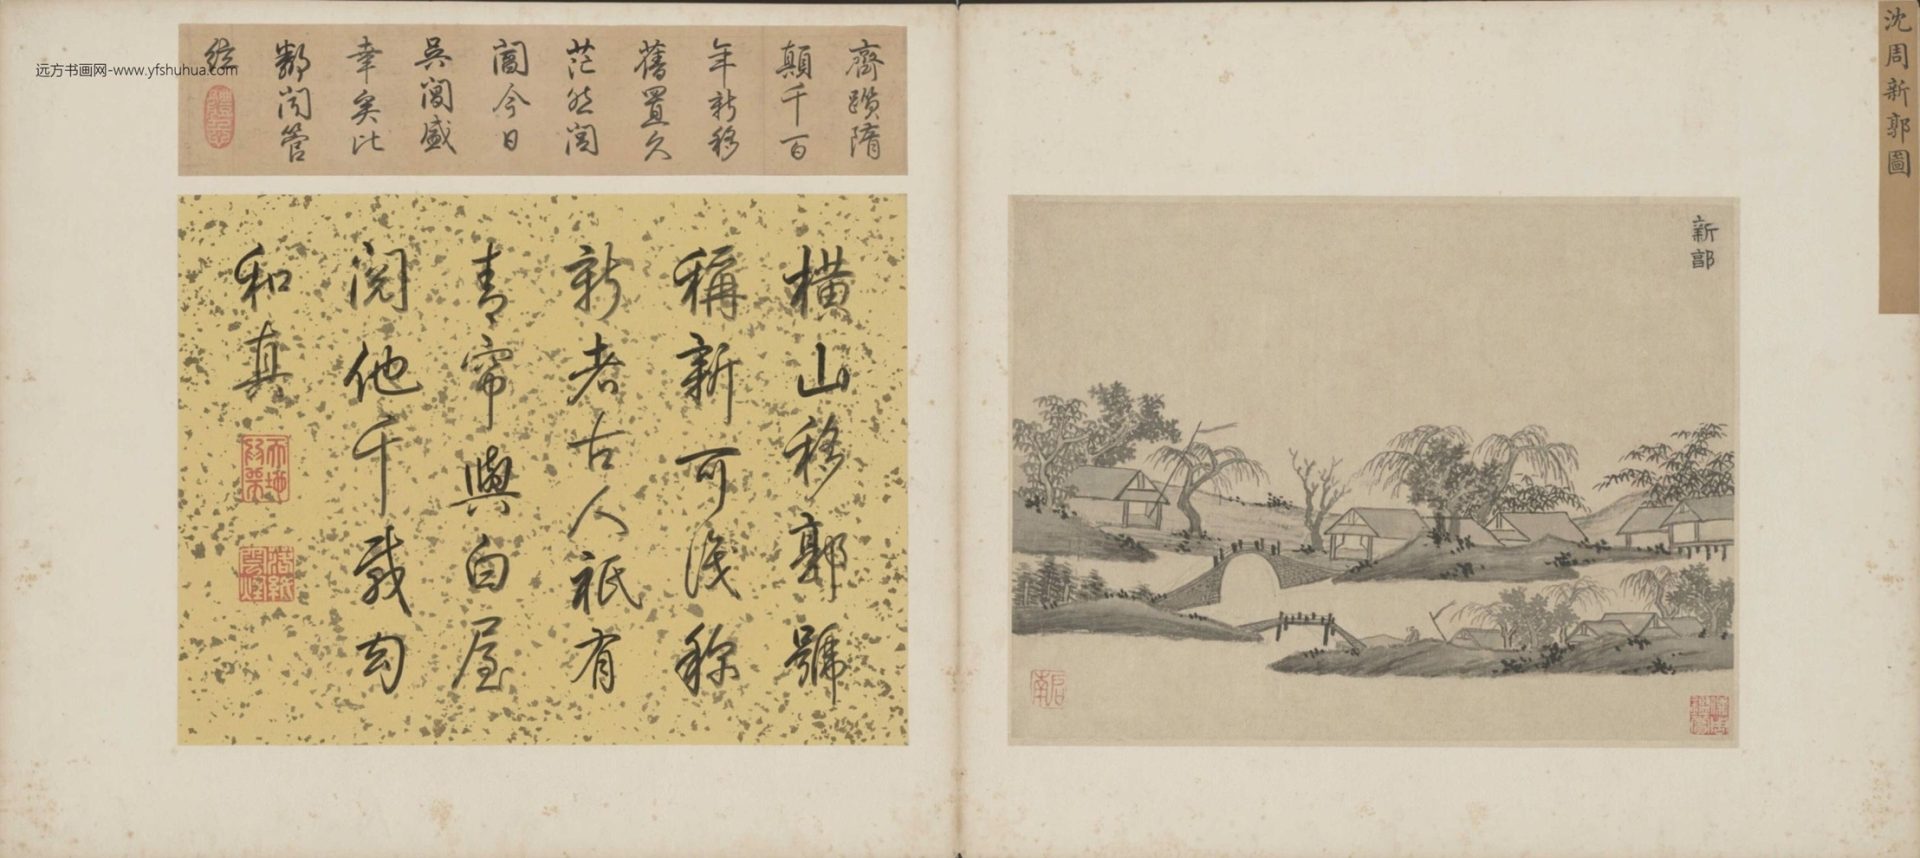 沈周新郭圖
新郭
齊躓隋
顛千百
年新移
舊置久
茫然閭
閻今日
吳閶盛
幸矣比
鄰鬧管
絃
橫山移郭號
稱新可識称
新者古人祇有
青帘與白屋
閱他千載幻
和真
远方书画网-www.yfshuhua.com